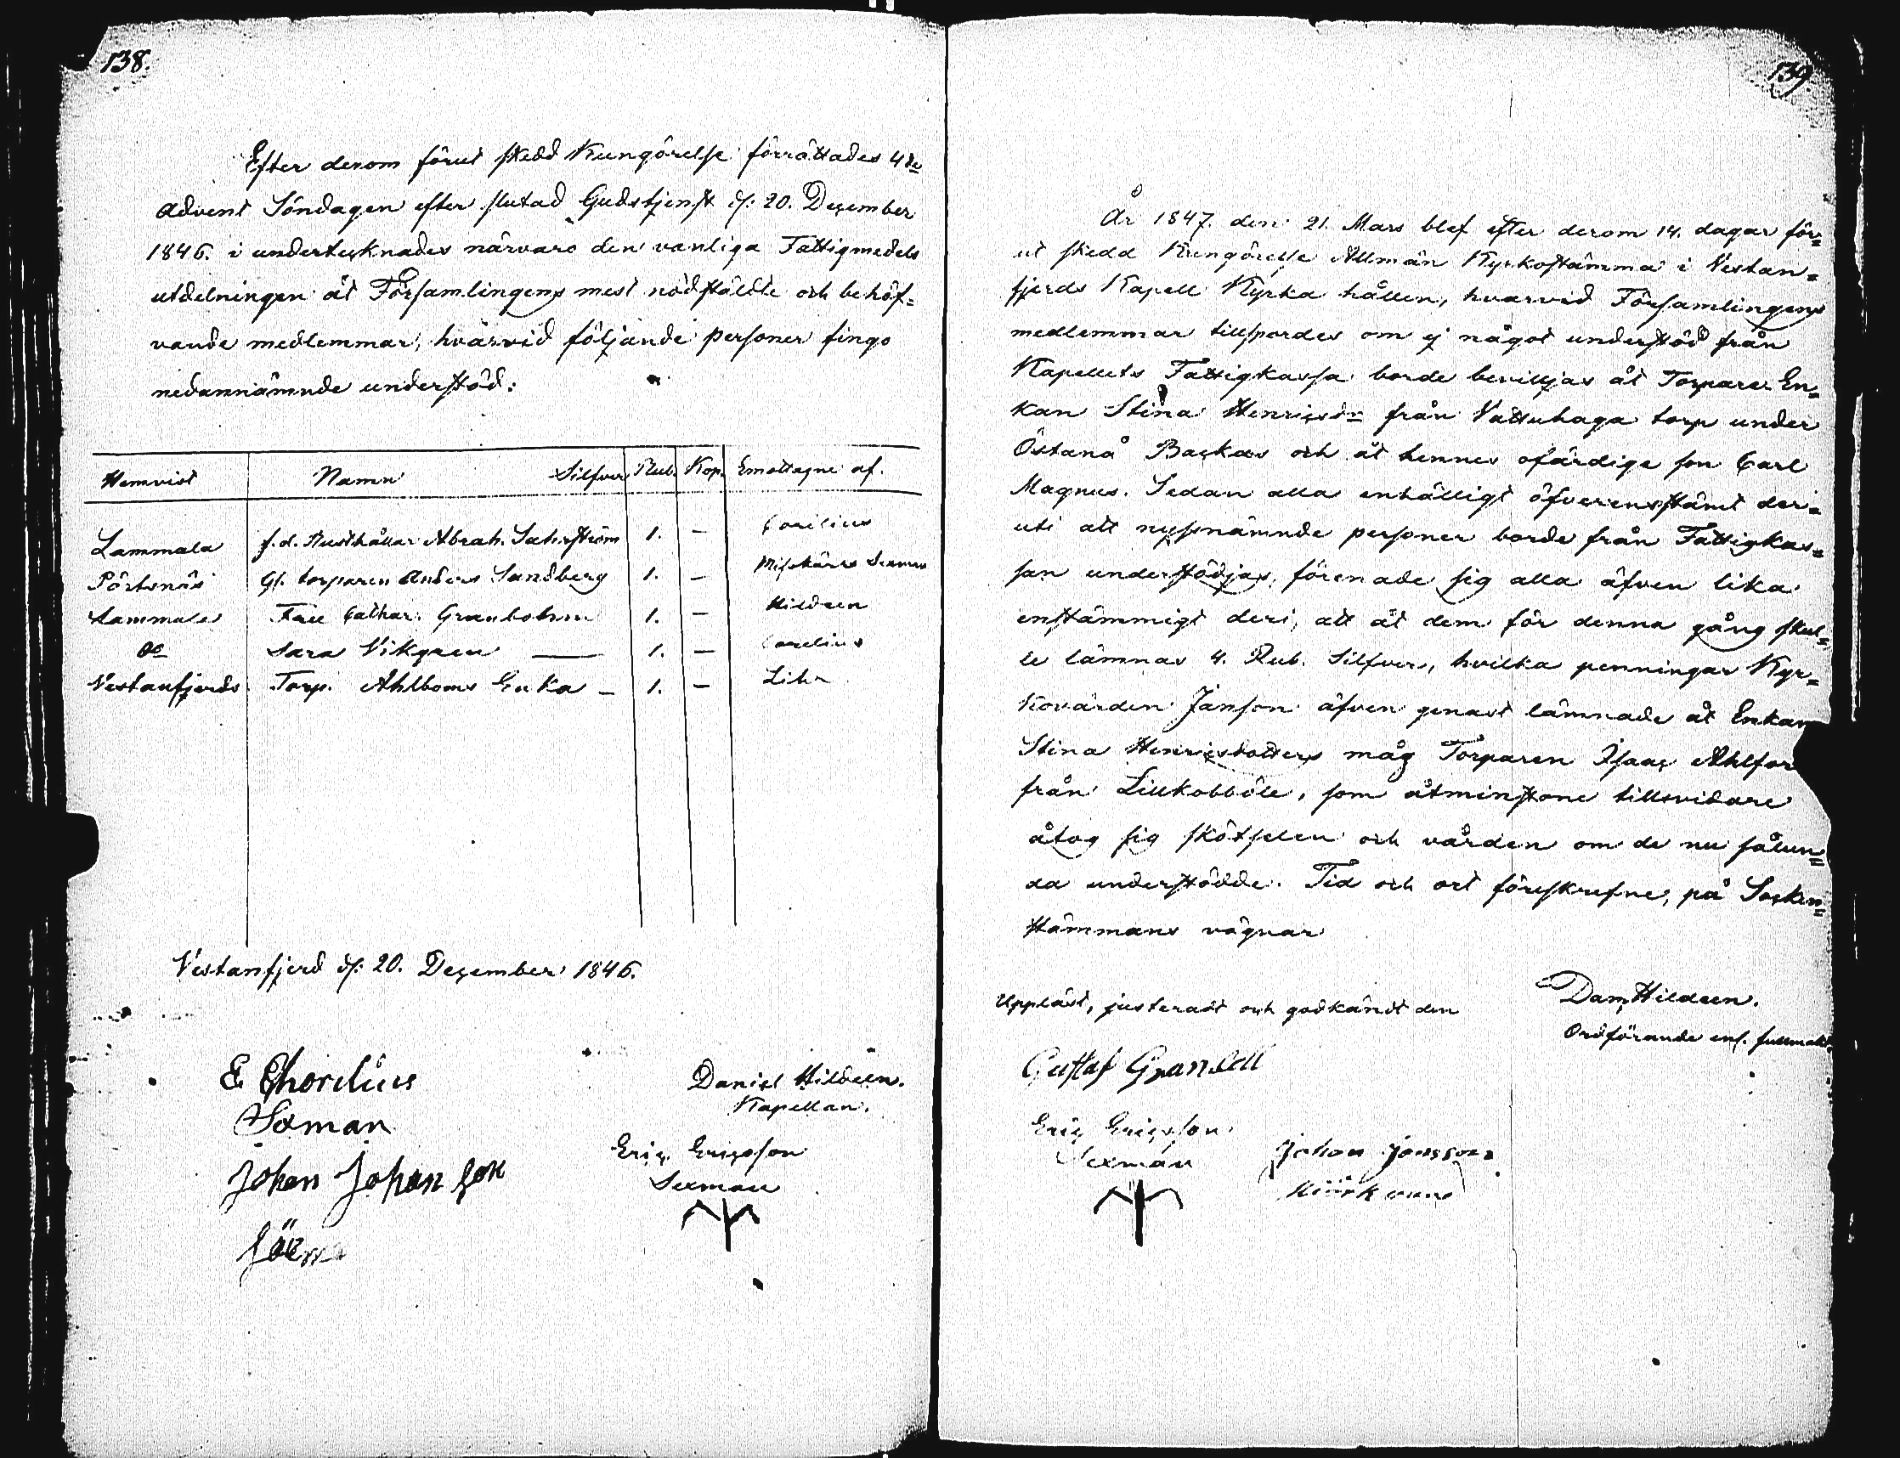 138.
Efter derom förut skedd Kungörelse förrättades 4de
Advent Söndagen efter slutad Gudstjenst d: 20. December
1846. i undertecknades närvaro den vanliga Fattigmedels
utdelningen åt Församlingens mest nödstälde och behöf=
vande medlemmar, hvarvid följande personer fingo
nedannämnde understöd:
Hemvist Namn Silfver Rub. Kop. Emottagne af.
Lammala f.d. Rusthållar Abrah. Saherström 1. — Corelius
Pörtsnäs Gl. torparen Anders Sandberg 1. —
Lammala Fru Cathar. Granholm 1. — Hildeen
do Sara Vikgren — 1. — Corelius
Vestanfjerds Torp. Ahlboms Enka — 1. —
Vestanfjerd d: 20. December 1846.
E Chorelius
Sexman
Johan Johan son
Daniel Hildeen.
Kapellan.
Eric Ericsson
Sexman
139.
År 1847. den 21. Mars blef efter derom 14. dagar för=
ut skedd Kungörelse Allmän Kyrkostämma i Vestan=
fjerds Kapell Kyrka hållen, hvarvid Församlingens
medlemmar tillspordes om ej något understöd från
Kapellets Fattigkassa borde beviljas åt Torpare En=
kan Stina Henricsdr från Vattuhaga torp under
Östanå Backas och åt hennes ofärdige son Carl
Magnus. Sedan alla enhälligt öfverensstämt der=
uti att nyssnämnde personer borde från Fattigkas=
san understödjas, förenade sig alla äfven lika
enstämmigt deri, att åt dem för denna gång skul=
le lämnas 4. Rub. Silfver, hvilka penningar Kyr=
kovärden Janson äfven genast lämnade åt Enkan
Stina Henricsdotters måg Torparen Isaac Ahlfor
från Lillkobböle, som åtminstone tillsvidare
åtog sig skötselen och vården om de nu sålun=
da understödde. Tid och ort föreskrefne, på Socken=
stämmans vägnar
Dan. Hildeen.
Ordförande enl. fullmakt
Uppläst, justeradt och godkändt den
Gustaf Gransell
Eric Ericsson
Sexman
Johan Jansson